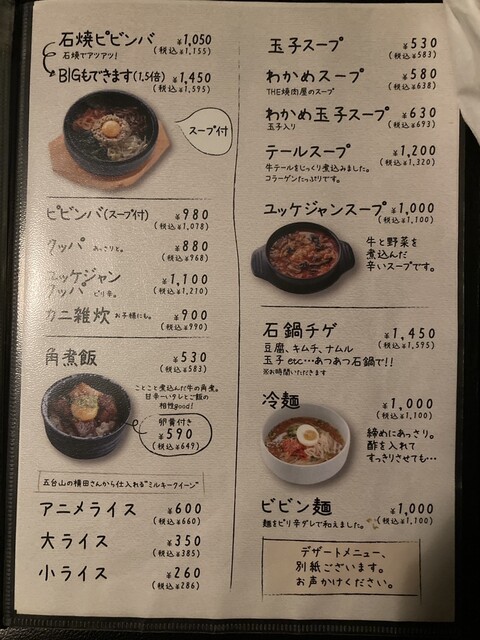 石焼ピビンバ ¥1,050
石焼でアツアツ! (税込¥1,155)
BIGもできます(1.5倍) ¥1,450
(税込¥1,595)
スープ付
ピビンバ(スープ付) ¥980
(税込¥1,078)
クッパ あっさりと。 ¥880
(税込¥968)
ユッケジャン
クッパ ピリ辛。 ¥1,100
(税込¥1,210)
カニ雑炊 お子様にも。 ¥900
(税込¥990)
角煮飯 ¥530
(税込¥583)
ことこと煮込んだ牛の角煮。
甘辛〜いタレとご飯の
相性good!
卵黄付き
¥590
(税込¥649)
五台山の横田さんから仕入れる"ミルキークイーン"
アニメライス ¥600
(税込¥660)
大ライス ¥350
(税込¥385)
小ライス ¥260
(税込¥286)
玉子スープ ¥530
(税込¥583)
わかめスープ ¥580
THE焼肉屋のスープ (税込¥638)
わかめ玉子スープ ¥630
玉子入り (税込¥693)
テールスープ ¥1,200
牛テールをじっくり煮込みました。 (税込¥1,320)
コラーゲンたっぷりです。
ユッケジャンスープ ¥1,000
(税込¥1,100)
牛と野菜を
煮込んだ
辛いスープです。
石鍋チゲ ¥1,450
(税込¥1,595)
豆腐、キムチ、ナムル
玉子etc…あつあつ石鍋で!!
※お時間いただきます
冷麺 ¥1,000
(税込¥1,100)
締めにあっさり。
酢を入れて
すっきりさせても…
ビビン麺 ¥1,000
麺をピリ辛ダレで和えました。 (税込¥1,100)
デザートメニュー、
別紙ございます。
お声かけください。